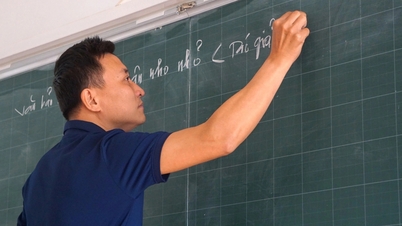 Văn bản nho nhỏ < Tác giả